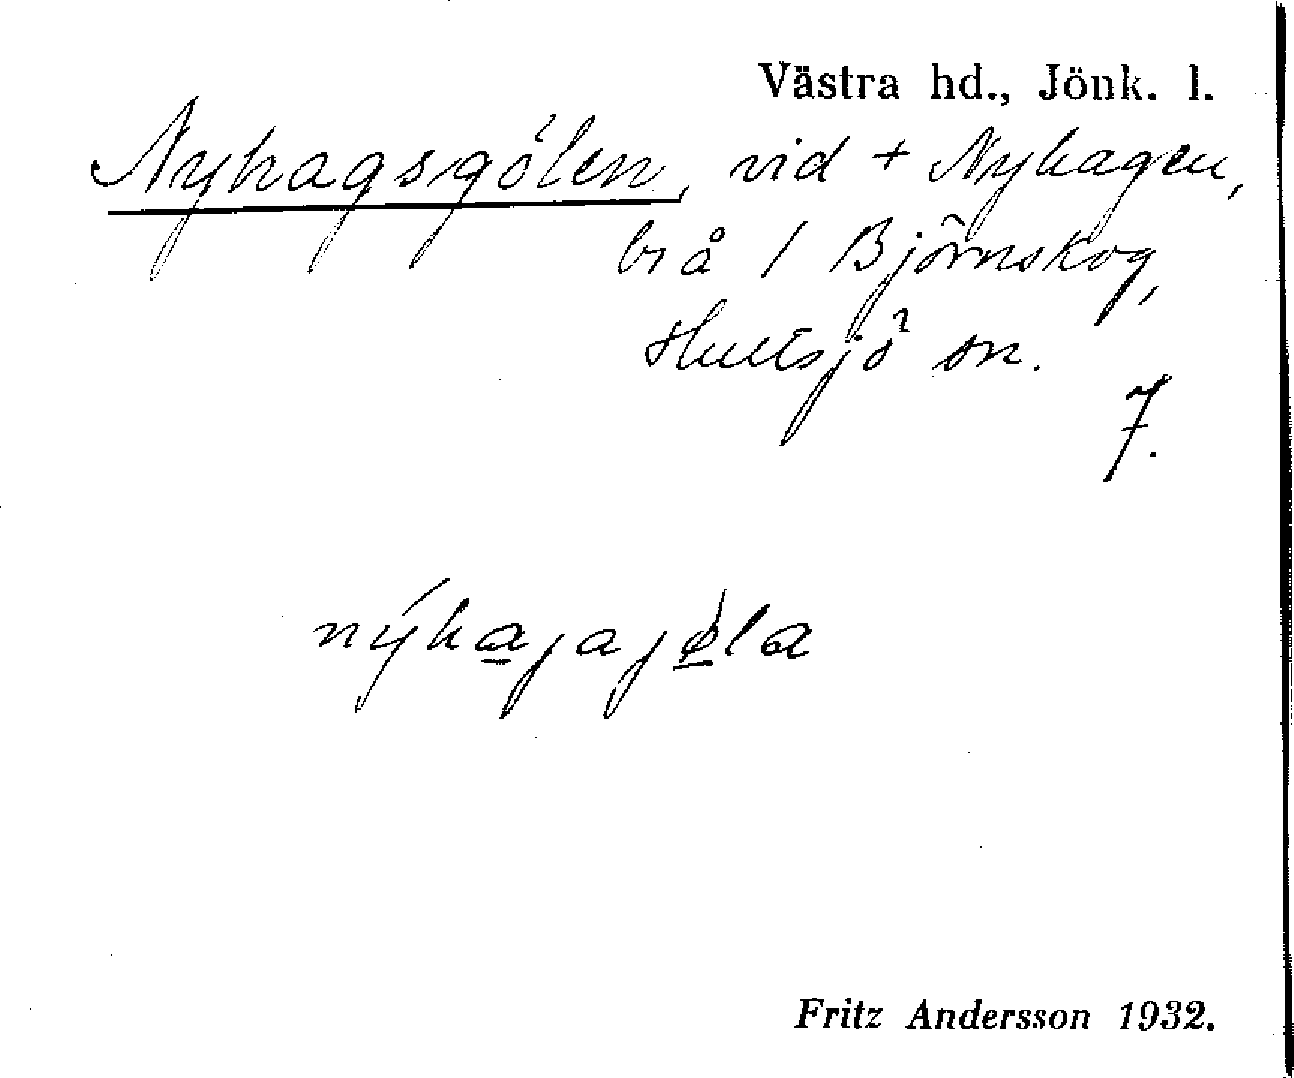 Västra hd., Jönk. l.
Nyhagsgölen, vid + Nyhagen,
på 1 Björnskog,
Hultsjö sn.
7.
nýhajajǿla
Fritz Andersson 1932.